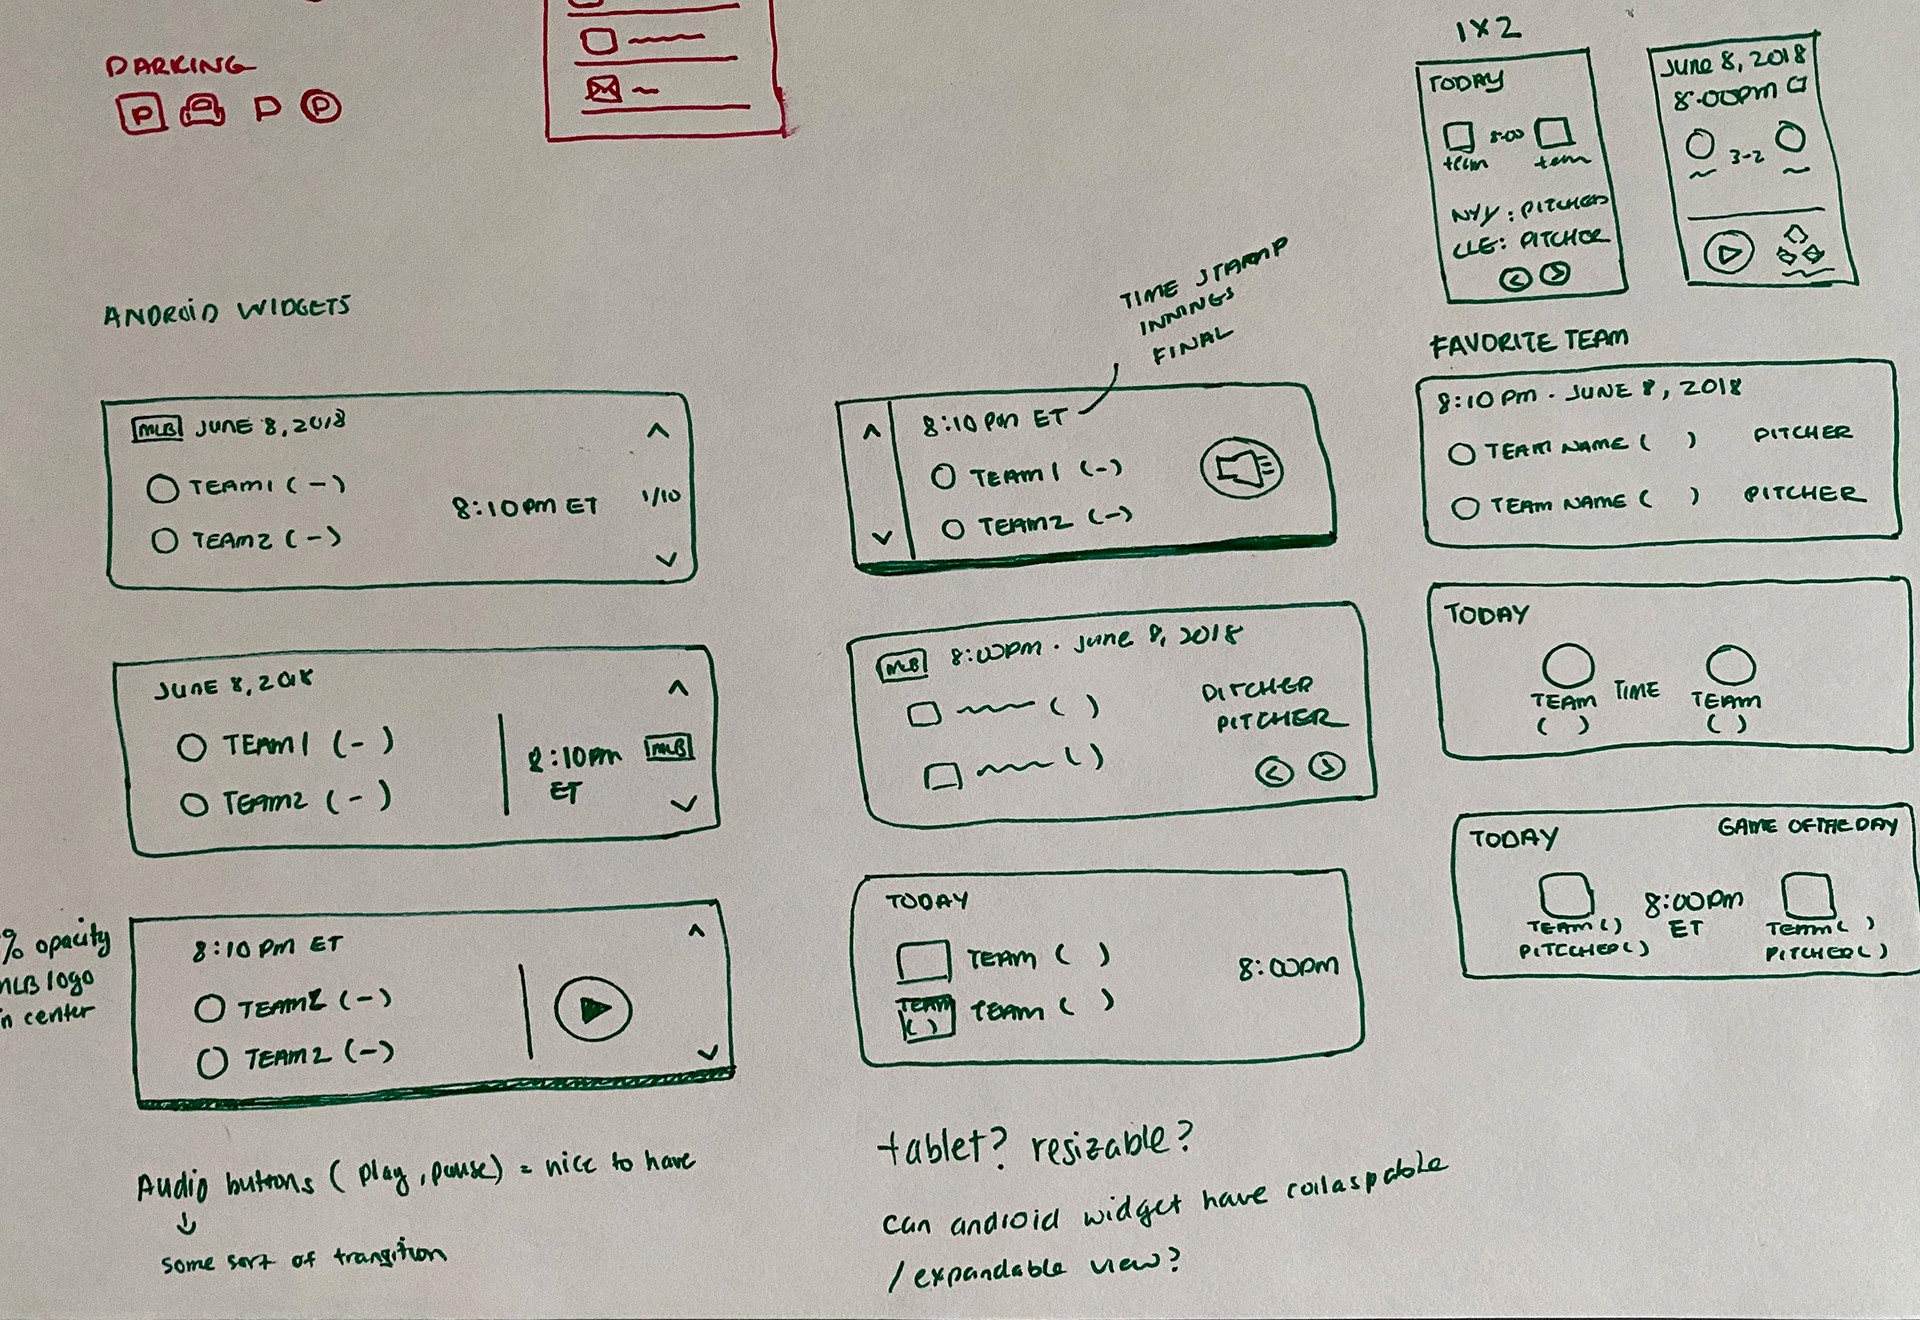 PARKING
P P P
ANDROID WIDGETS
MLB JUNE 8, 2018
TEAM1 (-)
8:10PM ET 1/10
TEAM2 (-)
JUNE 8, 2018
TEAM1 (-)
8:10PM MLB
ET
TEAM2 (-)
% opacity
MLB logo
in center
8:10 PM ET
TEAM2 (-)
TEAM2 (-)
Audio buttons (play, pause) = nice to have
some sort of transition
TIME STAMP
INNINGS
FINAL
8:10 PM ET
TEAM1 (-)
TEAM2 (-)
MLB 8:00PM · June 8, 2018
( ) PITCHER
PITCHER
( )
TODAY
TEAM ( )
8:00PM
TEAM
( )
TEAM ( )
tablet? resizable?
can android widget have collaspable
/expandable view?
1X2
TODAY
8:00
team team
NYY: PITCHER
CLE: PITCHER
June 8, 2018
8:00PM
3-2
FAVORITE TEAM
8:10 PM · JUNE 8, 2018
TEAM NAME ( ) PITCHER
TEAM NAME ( ) PITCHER
TODAY
TEAM TIME TEAM
( ) ( )
TODAY GAME OF THE DAY
8:00PM
ET
TEAM ( ) TEAM ( )
PITCCHER ( ) PITCHER ( )